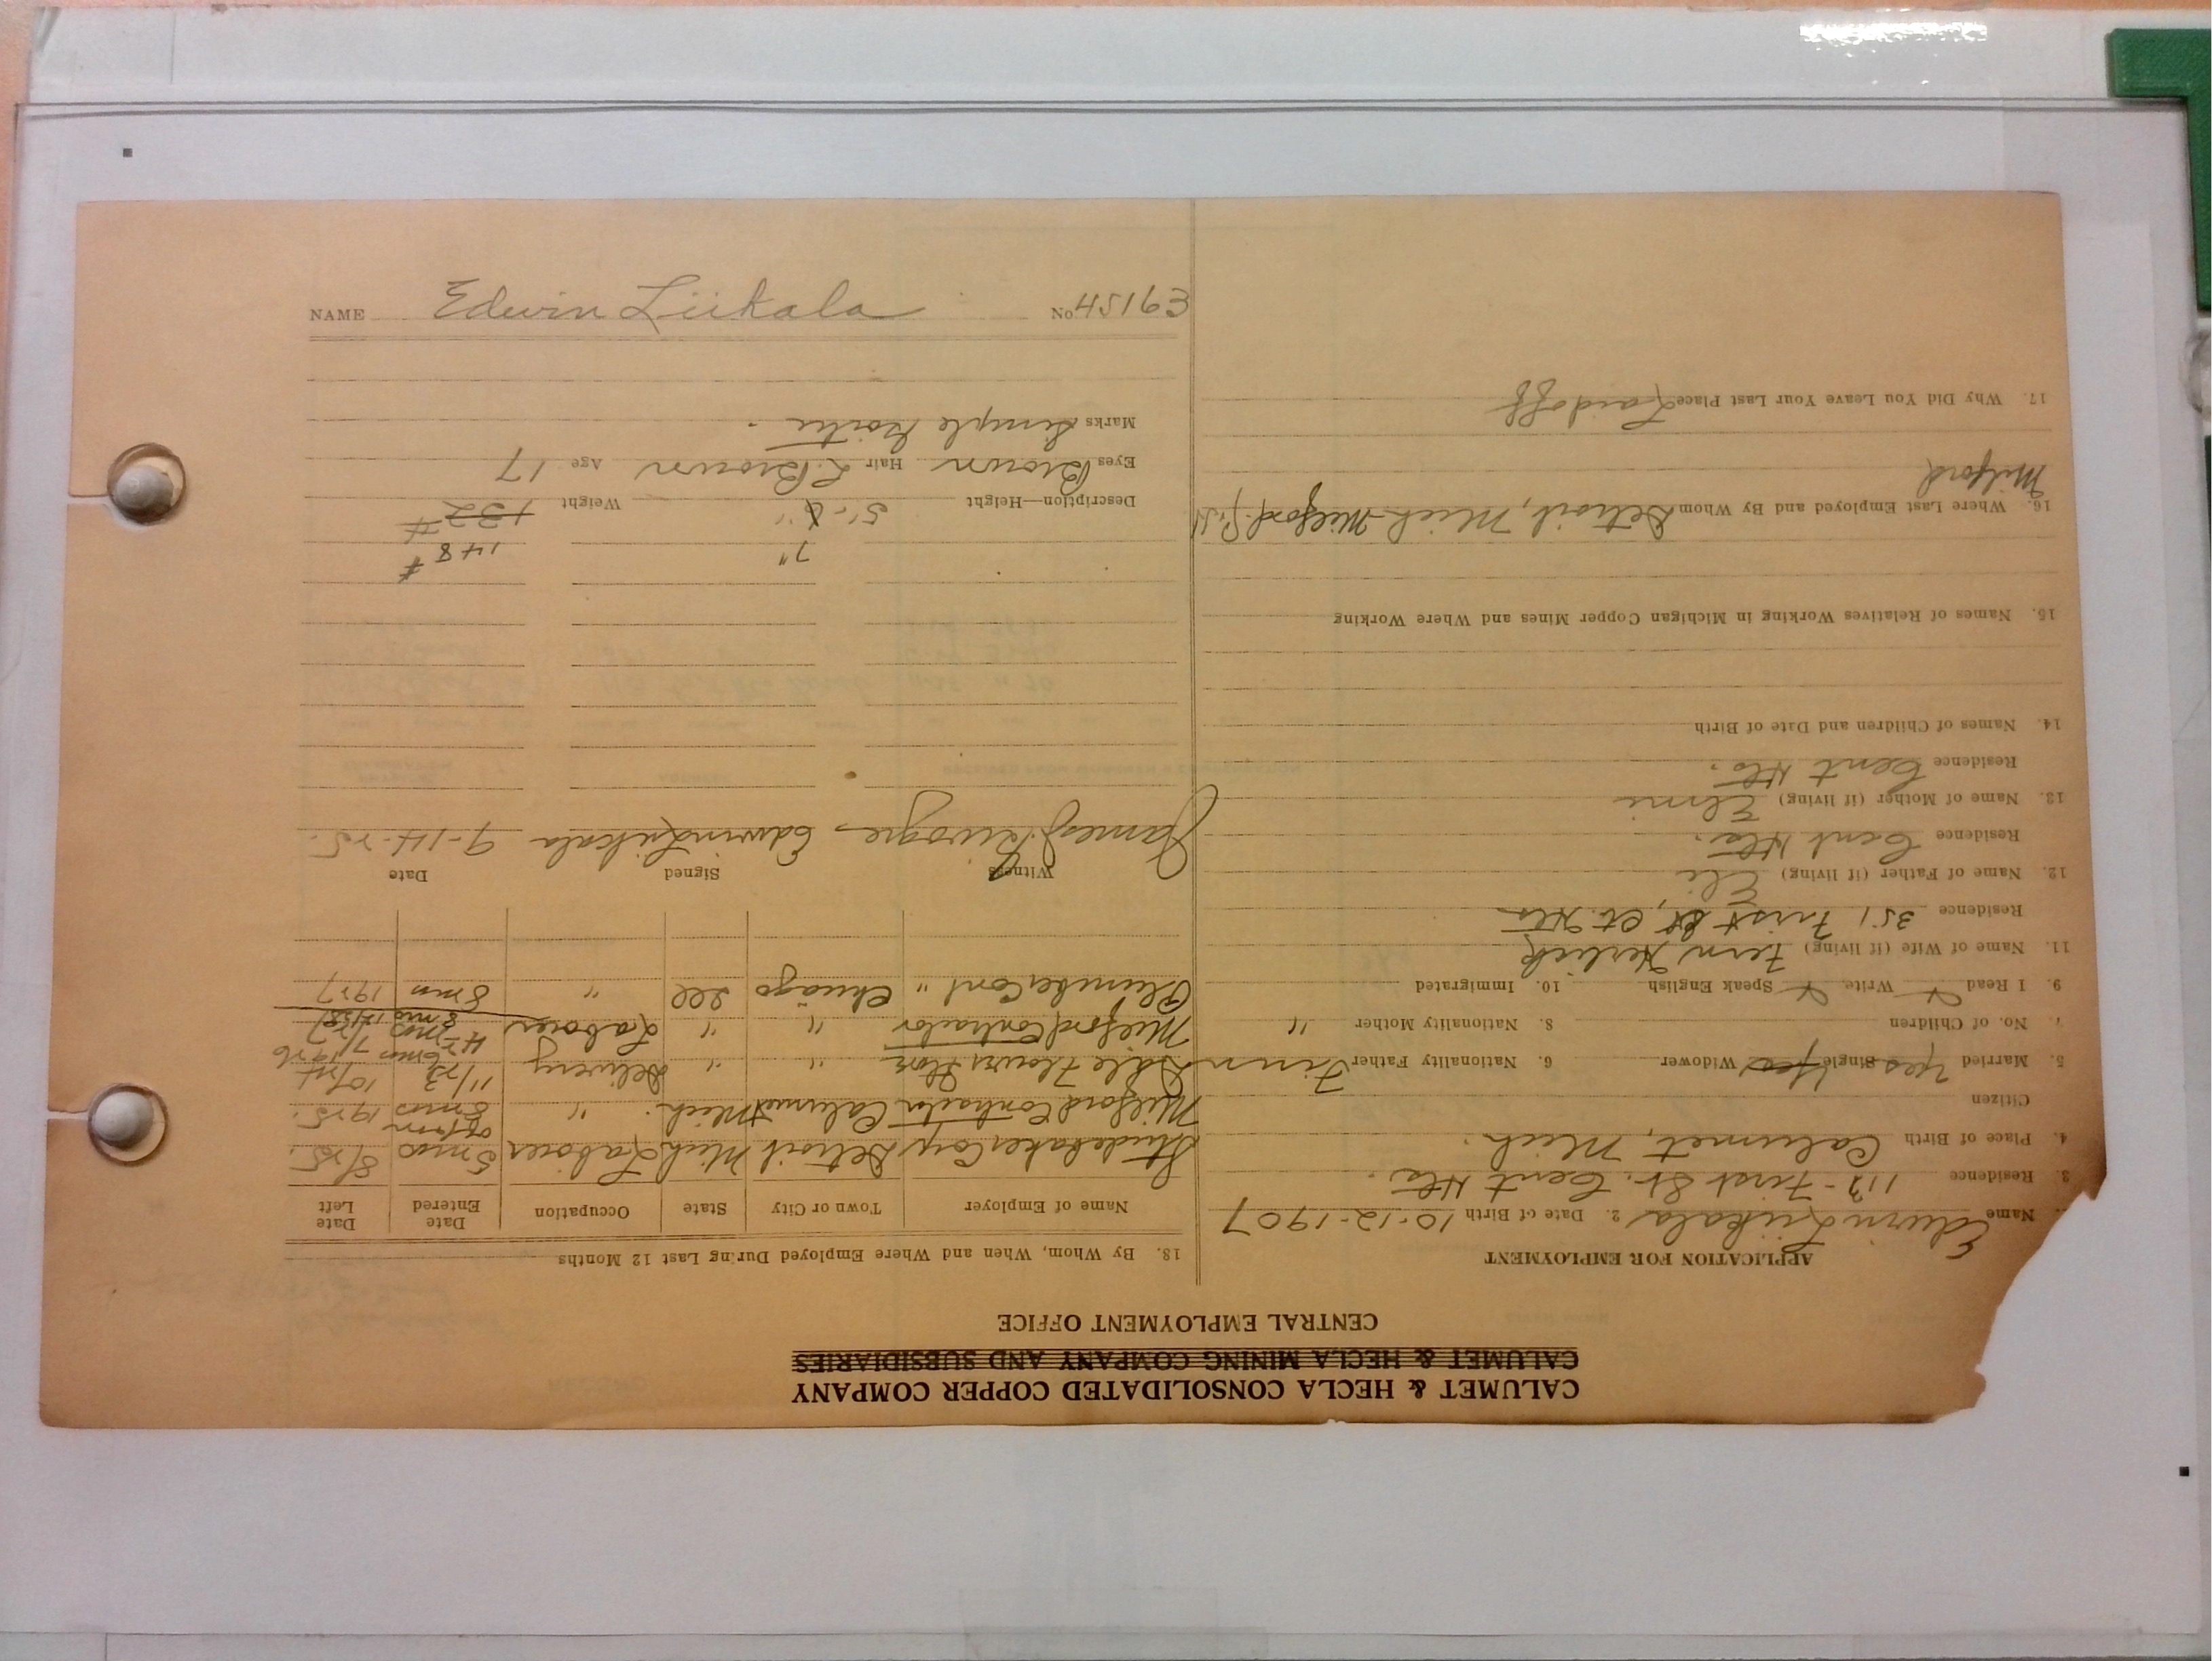 CALUMET & HECLA CONSOLIDATED COPPER COMPANY
CALUMET & HECLA MINING COMPANY AND SUBSIDIARIES
CENTRAL EMPLOYMENT OFFICE
APPLICATION FOR EMPLOYMENT
Name Edwin Liikala 2. Date of Birth 10-12-1907
3. Residence 113 - First St. Cent Hts.
4. Place of Birth Calumet, Mich.
Citizen
5. Married Yes Single Yes Widower 6. Nationality Father Finn
7. No. of Children 8. Nationality Mother "
9. I Read Write Speak English 10. Immigrated
11. Name of Wife (if living) Fern
Residence 351 First St, Ct. Hts
12. Name of Father (if living) Eli
Residence Cent Hts.
13. Name of Mother (if living) Elmi
Residence Cent Hts.
14. Names of Children and Date of Birth
15. Names of Relatives Working in Michigan Copper Mines and Where Working
16. Where Last Employed and By Whom Detroit, Mich - Milford
Milford
17. Why Did You Leave Your Last Place Laid off
18. By Whom, When and Where Employed During Last 12 Months
Name of Employer Town or City State Occupation Date Entered Date Left
Studebaker Corp Detroit Mich Laborer 5 mos 8/25.
Milford Contractor Calumet Mich. " 8 mos 1925.
Dale Flower " " Delivery 11/23 10/24
6 mos 7/1926
Milford Contractor " " Laborer
8 mo
Plumber Cont " Chicago Ill " 8 mn 1927
Witness Signed Date
James Edwin Liikala 9-14-25.
7" 148 #
Description—Height 5'-6" Weight 132 #
Eyes Brown Hair L. Brown Age 17
Marks Simple Goitre.
NAME Edwin Liikala No 45163